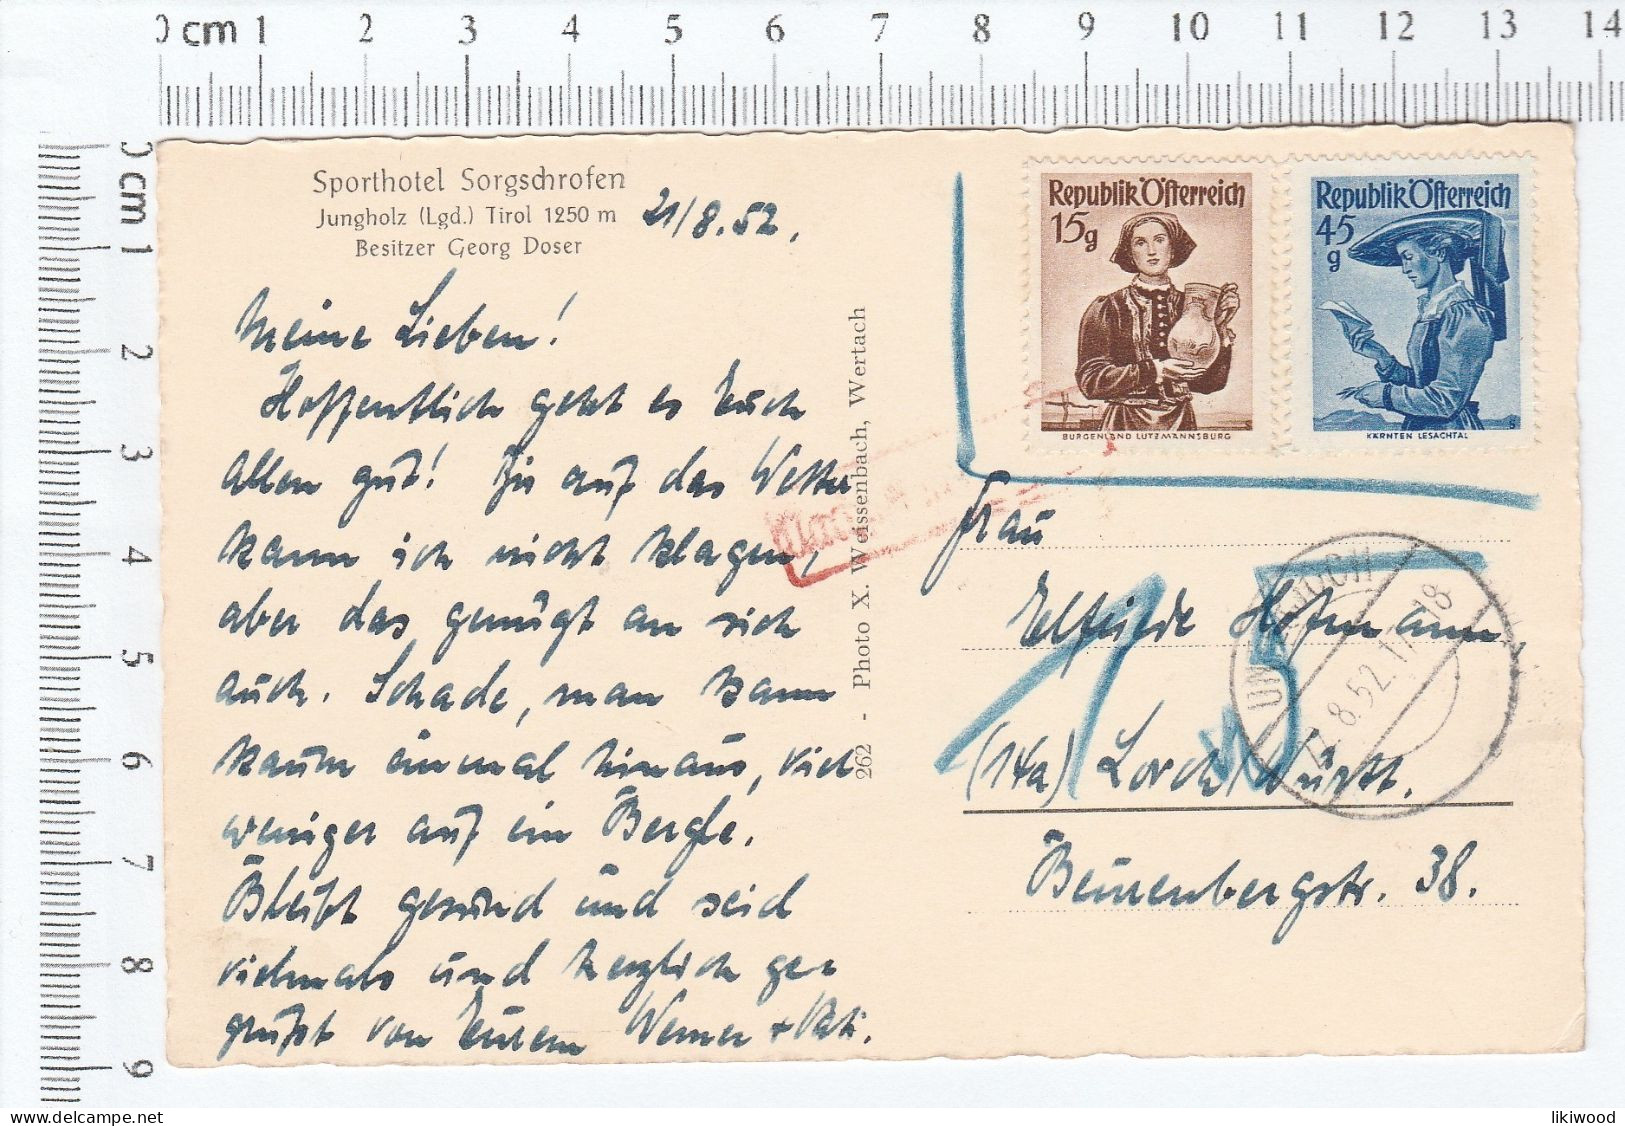 0 cm 1 2 3 4 5 6 7 8 9 10 11 12 13 14
0 cm 1 2 3 4 5 6 7 8 9
Sporthotel Sorgschrofen
Jungholz (Lgd.) Tirol 1250 m
Besitzer Georg Doser
21/8.52.
Meine Lieben!
Hoffentlich geht es Euch
allen gut! Bis auf das Wetter
kann ich nicht klagen,
aber das genügt an sich
auch. Schade, man kann
kaum einmal hinaus, viel
weniger auf ein Bergle.
Bleibt gesund und seid
vielmals und herzlich ge-
grüßt von Eurem Werner +
262 - Photo X. Weissenbach, Wertach
Republik Österreich
15 g
BURGENLAND LUTZMANNSBURG
Republik Österreich
45 g
KÄRNTEN LESACHTAL
S
Frau
Elfriede Hofmann,
(14a) Lorch/Württ.
Beurenbergstr. 38.
15
8.52.17-18
likiwood